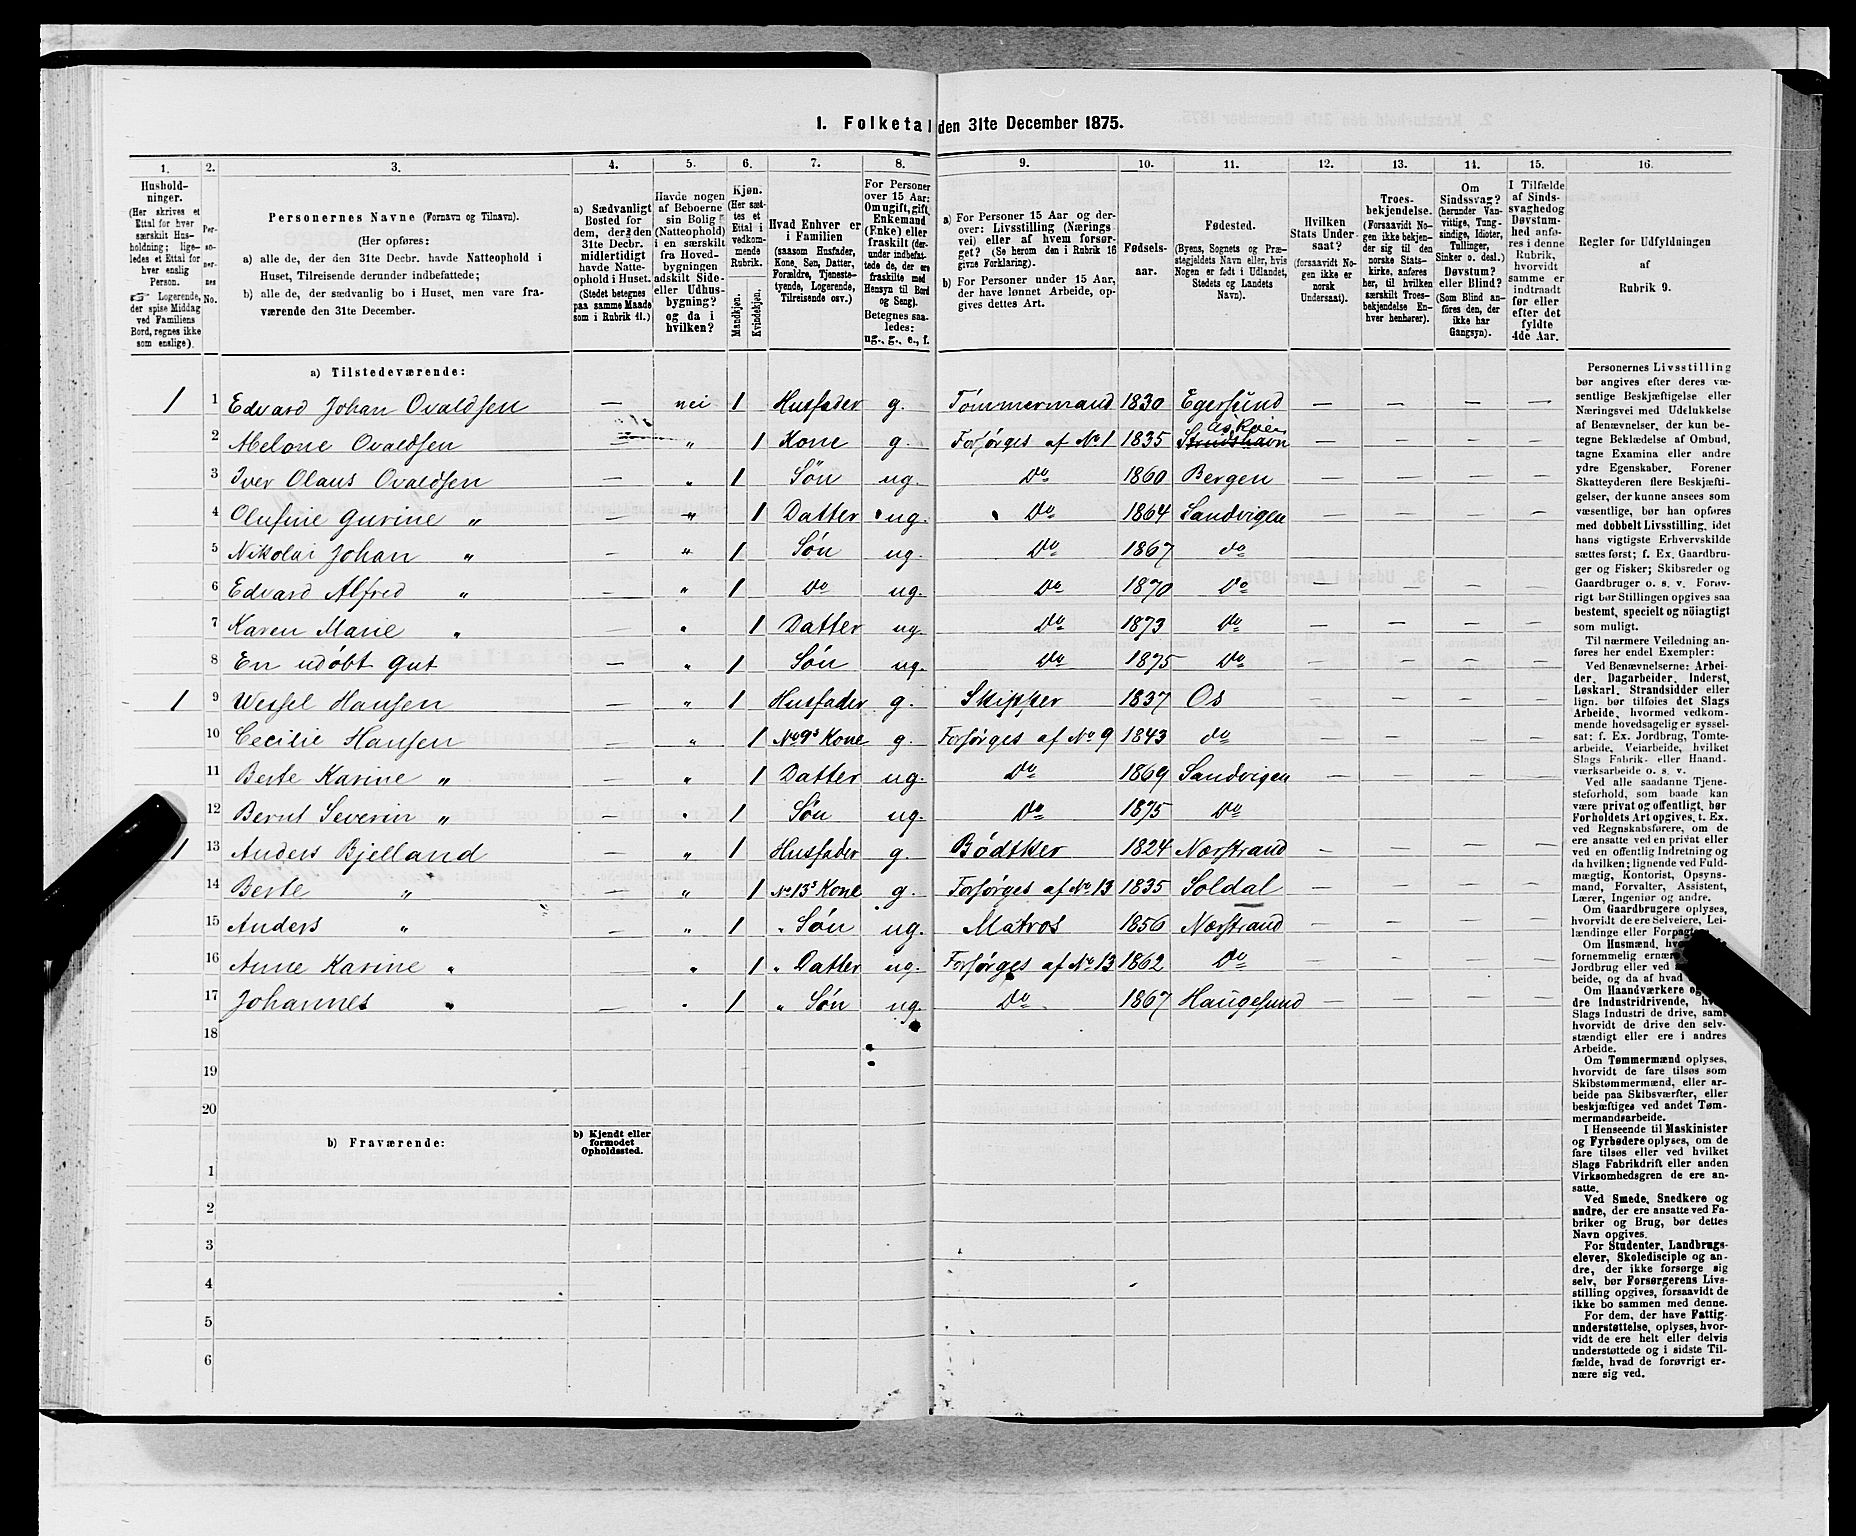 1. Folketal den 31te December 1875.
1. 2. 3. 4. 5. 6. 7. 8. 9. 10. 11. 12. 13. 14. 15. 16.
Hushold-
ninger.
(Her skrives et
Ettal for hver
særskilt Hus-
holdning; lige-
ledes et Ettal for
hver enslig
Person.
☞ Logerende,
der spise Middag
ved Familiens
Bord, regnes ikke
som enslige).
Per-
so-
ner-
nes
No.
Personernes Navne (Fornavn og Tilnavn).
(Her opføres:
a) alle de, der den 31te Decbr. havde Natteophold i
Huset, Tilreisende derunder indbefattede;
b) alle de, der sædvanlig bo i Huset, men vare fra-
værende den 31te December.
a) Sædvanligt
Bosted for
dem, der den
31te Decbr.
midlertidigt
havde Natte-
ophold i Huset.
(Stedet betegnes
paa samme Maade
som i Rubrik 11.)
Havde nogen
af Beboerne
sin Bolig
(Natteophold)
i en særskilt
fra Hoved-
bygningen
adskilt Side-
eller Udhus-
bygning?
og da i
hvilken?
Kjøn.
(Her sæt-
tes et
Ettal i
vedkom-
mende
Rubrik.
Mandkjøn.
Kvindekjøn.
Hvad Enhver er
i Familien
(saasom Husfader,
Kone, Søn, Datter,
Forældre, Tjeneste-
tyende, Logerende,
Tilreisende osv.)
For Personer
over 15 Aar:
Om ugift, gift,
Enkemand
(Enke) eller
fraskilt (der-
under indbefat-
tede de, der ere
fraskilte med
Hensyn til Bord
og Seng).
Betegnes saa-
ledes:
ug., g., e., f.
a) For Personer 15 Aar og der-
over: Livsstilling (Nærings-
vei) eller af hvem forsør-
get? (Se herom den i Rubrik 16
givne Forklaring).
b) For Personer under 15 Aar,
der have lønnet Arbeide, op-
gives dettes Art.
Fødsels-
aar.
Fødested.
(Byens, Sognets og Præ-
stegjeldets Navn eller, hvis
Nogen er født i Udlandet,
Stedets og Landets
Navn).
Hvilken
Stats Under-
saat?
(forsaavidt No-
gen ikke er
norsk
Undersaat).
Troes-
bekjendelse.
(Forsaavidt No-
gen ikke bekjen-
der sig til den
norske Stats-
kirke, anføres
her, til hvilken
særskilt Troes-
bekjendelse En-
hver henhører).
Om
Sindssvag?
(herunder Van-
vittige, Tung-
sindige, Idioter,
Tullinger,
Sinker o. desl.)
Døvstum?
eller Blind?
(Som Blind an-
føres den, der
ikke har
Gangsyn).
I Tilfælde
af Sinds-
svaghed og
Døvstum-
hed anfø-
res i denne
Rubrik,
hvorvidt
samme er
indtraadt
før eller
efter det
fyldte
4de Aar.
Regler for Udfyldningen
af
Rubrik 9.
a) Tilstedeværende:
1 1 Edvard Johan Ovaldsen — nei 1 Husfader g. Tømmermand 1830 Egersund — — — —
Askøen
2 Melone Ovaldsen " 1 Kone g. Forsørges af No 1 1835 Strudshavn — — — —
3 Iver Olaus Ovaldsen — " 1 Søn ug. Do 1860 Bergen — — — —
4 Olufine Gurine " — " 1 Datter ug. Do 1864 Sandvigen — — — —
5 Nikolai Johan " — " 1 Søn ug. Do 1867 do — — — —
6 Edvard Alfred " — " 1 Do ug. Do 1870 Do — — — —
7 Karen Marie " — " 1 Datter ug. Do 1873 Do — — — —
8 En udøbt Gut — " 1 Søn ug. Do 1875 Do — — — —
1 9 Wessel Hansen — " 1 Husfader g. Skipper 1837 Os — — — —
10 Cecilie Hansen — " 1 No 9s Kone g. Forsørges af No 9 1843 do — — — —
11 Berte Karine " — " 1 Datter ug. Do 1869 Sandvigen — — — —
12 Bernt Severin " — " 1 Søn ug. Do 1875 Do — — — —
1 13 Anders Bjelland — " 1 Husfader g. Bødtker 1824 Nærstrand — — — —
14 Berte " — " 1 No 13s Kone g. Forsørges af No 13 1835 Soldal — — — —
15 Anders " — " 1 " Søn ug. Matros 1856 Nærstrand — — — —
16 Anne Karine " — " 1 " Datter ug. Forsørges af No 13 1862 Do — — — —
17 Johannes " — " 1 " Søn ug. Do 1867 Haugesund — — — —
18
19
20
b) Fraværende:
b) Kjendt eller
formodet
Opholdssted.
1
2
3
4
5
6
Personernes Livsstilling
bør angives efter deres væ-
sentlige Beskjæftigelse eller
Næringsvei med Udelukkelse
af Benævnelser, der kun be-
tegne Beklædelse af Ombud,
tagne Examina eller andre
ydre Egenskaber. Forener
Skatteyderen flere Beskjæfti-
gelser, der kunne ansees som
væsentlige, bør han opføres
med dobbelt Livsstilling, idet
hans vigtigste Erhvervskilde
sættes først; f. Ex. Gaardbru-
ger og Fisker; Skibsreder og
Gaardbruger o. s. v. Forøv-
rigt bør Stillingen opgives saa
bestemt, specielt og nöiagtigt
som muligt.
Til nærmere Veiledning an-
føres her endel Exempler:
Ved Benævnelserne: Arbei-
der, Dagarbeider, Inderst,
Løskarl, Strandsidder eller
lign. bør tilføies det Slags
Arbeide, hvormed vedkom-
mende hovedsagelig er syssel-
sat: f. Ex. Jordbrug, Tomte-
arbeide, Veiarbeide, hvilket
Slags Fabrik- eller Haand-
værksarbeide o. s. v.
Ved alle saadanne Tjene-
steforhold, som baade kan
være privat og offentligt, bør
Forholdets Art opgives, t. Ex.
ved Regnskabsførere, om de
ere ansatte ved en privat eller
ved en offentlig Indretning og
da hvilken; lignende ved Fuld-
mægtig, Kontorist, Opsyns-
mand, Forvalter, Assistent,
Lærer, Ingeniør og andre.
Om Gaardbrugere oplyses,
hvorvidt de ere Selveiere, Lei-
lændinge eller Forpagtere.
Om Husmænd,
fornemmelig
Jordbrug eller ved
beide, og da af hvad
Om Haandværkere og
dre Industridrivende,
Slags Industri de drive, samt
hvorvidt de drive den selv-
stændigt eller ere i andres
Arbeide.
Om Tømmermænd oplyses,
hvorvidt de fare tilsøs som
Skibstømmermænd, eller ar-
beide paa Skibsværfter, eller
beskjæftiges ved andet Tøm-
mermandsarbeide.
I Henseende til Maskinister
og Fyrbødere oplyses, om de
fare tilsøs eller ved hvilket
Slags Fabrikdrift eller anden
Virksomhedsgren de ere an-
satte.
Ved Smede, Snedkere og
andre, der ere ansatte ved Fa-
briker og Brug, bør dettes
Navn opgives.
For Studenter, Landbrugs-
elever, Skoledisciple og an-
dre, der ikke forsørge sig
selv, bør Forsørgerens Livs-
stilling opgives, forsaavidt de
ikke bo sammen med denne.
For dem, der have Fattig-
understøttelse, oplyses, hvor-
vidt de ere helt eller delvis
understøttede og i sidste Til-
fælde, hvad de forøvrigt er-
nære sig ved.